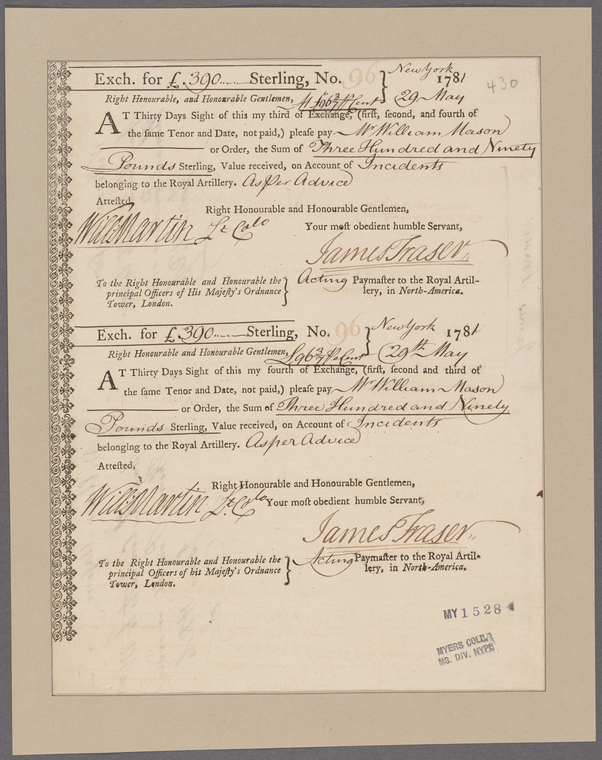 430
New York
Exch. for £.390...... Sterling, No. 96 1781
29 May
Right Honourable, and Honourable Gentlemen, At £96¾ ⅌ Cent
AT Thirty Days Sight of this my third of Exchange, (first, second, and fourth of
the same Tenor and Date, not paid,) please pay Mr William Mason
or Order, the Sum of Three Hundred and Ninety
Pounds Sterling, Value received, on Account of Incidents
belonging to the Royal Artillery. As Per Advice
Attested,
Right Honourable and Honourable Gentlemen,
Will Martin Lt Colo
Your most obedient humble Servant,
James Fraser
To the Right Honourable and Honourable the
principal Officers of His Majesty's Ordnance
Tower, London.
Acting Paymaster to the Royal Artil-
lery, in North-America.
New York
Exch. for £.390...... Sterling, No. 96 1781
29th May
Right Honourable and Honourable Gentlemen, £96¾ ⅌ Cent
AT Thirty Days Sight of this my fourth of Exchange, (first, second and third of
the same Tenor and Date, not paid,) please pay Mr William Mason
or Order, the Sum of Three Hundred and Ninety
Pounds Sterling, Value received, on Account of Incidents
belonging to the Royal Artillery. As per Advice
Attested,
Right Honourable and Honourable Gentlemen,
Will Martin Lt Colo
Your most obedient humble Servant,
James Fraser
To the Right Honourable and Honourable the
principal Officers of his Majesty's Ordnance
Tower, London.
Acting Paymaster to the Royal Artil-
lery, in North-America.
MY 1528
MYERS COLL.
MS. DIV. NYPL